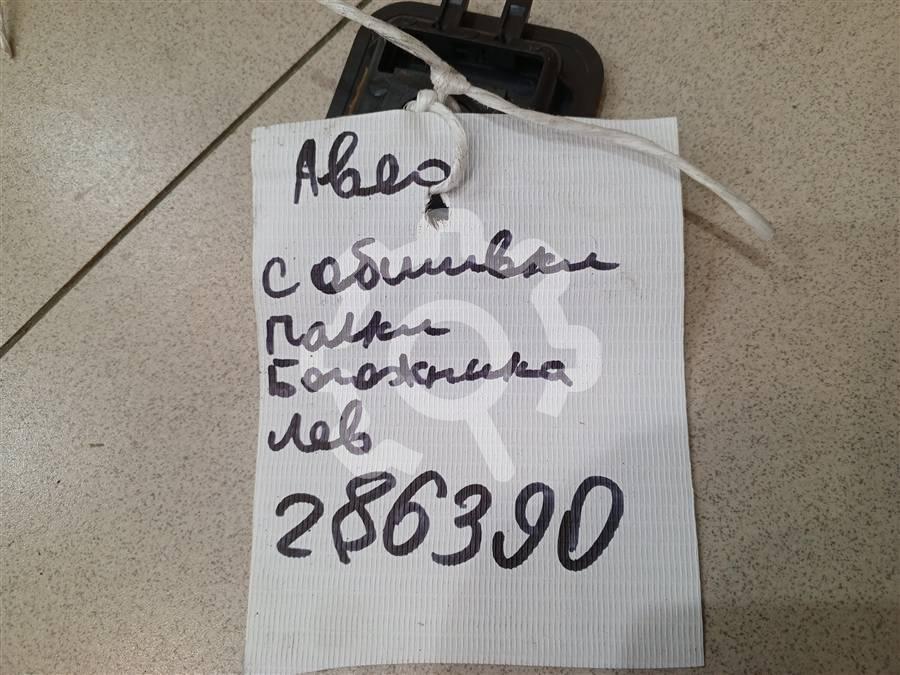 Авео
с обшивки
полки
Богожника
лев
286390